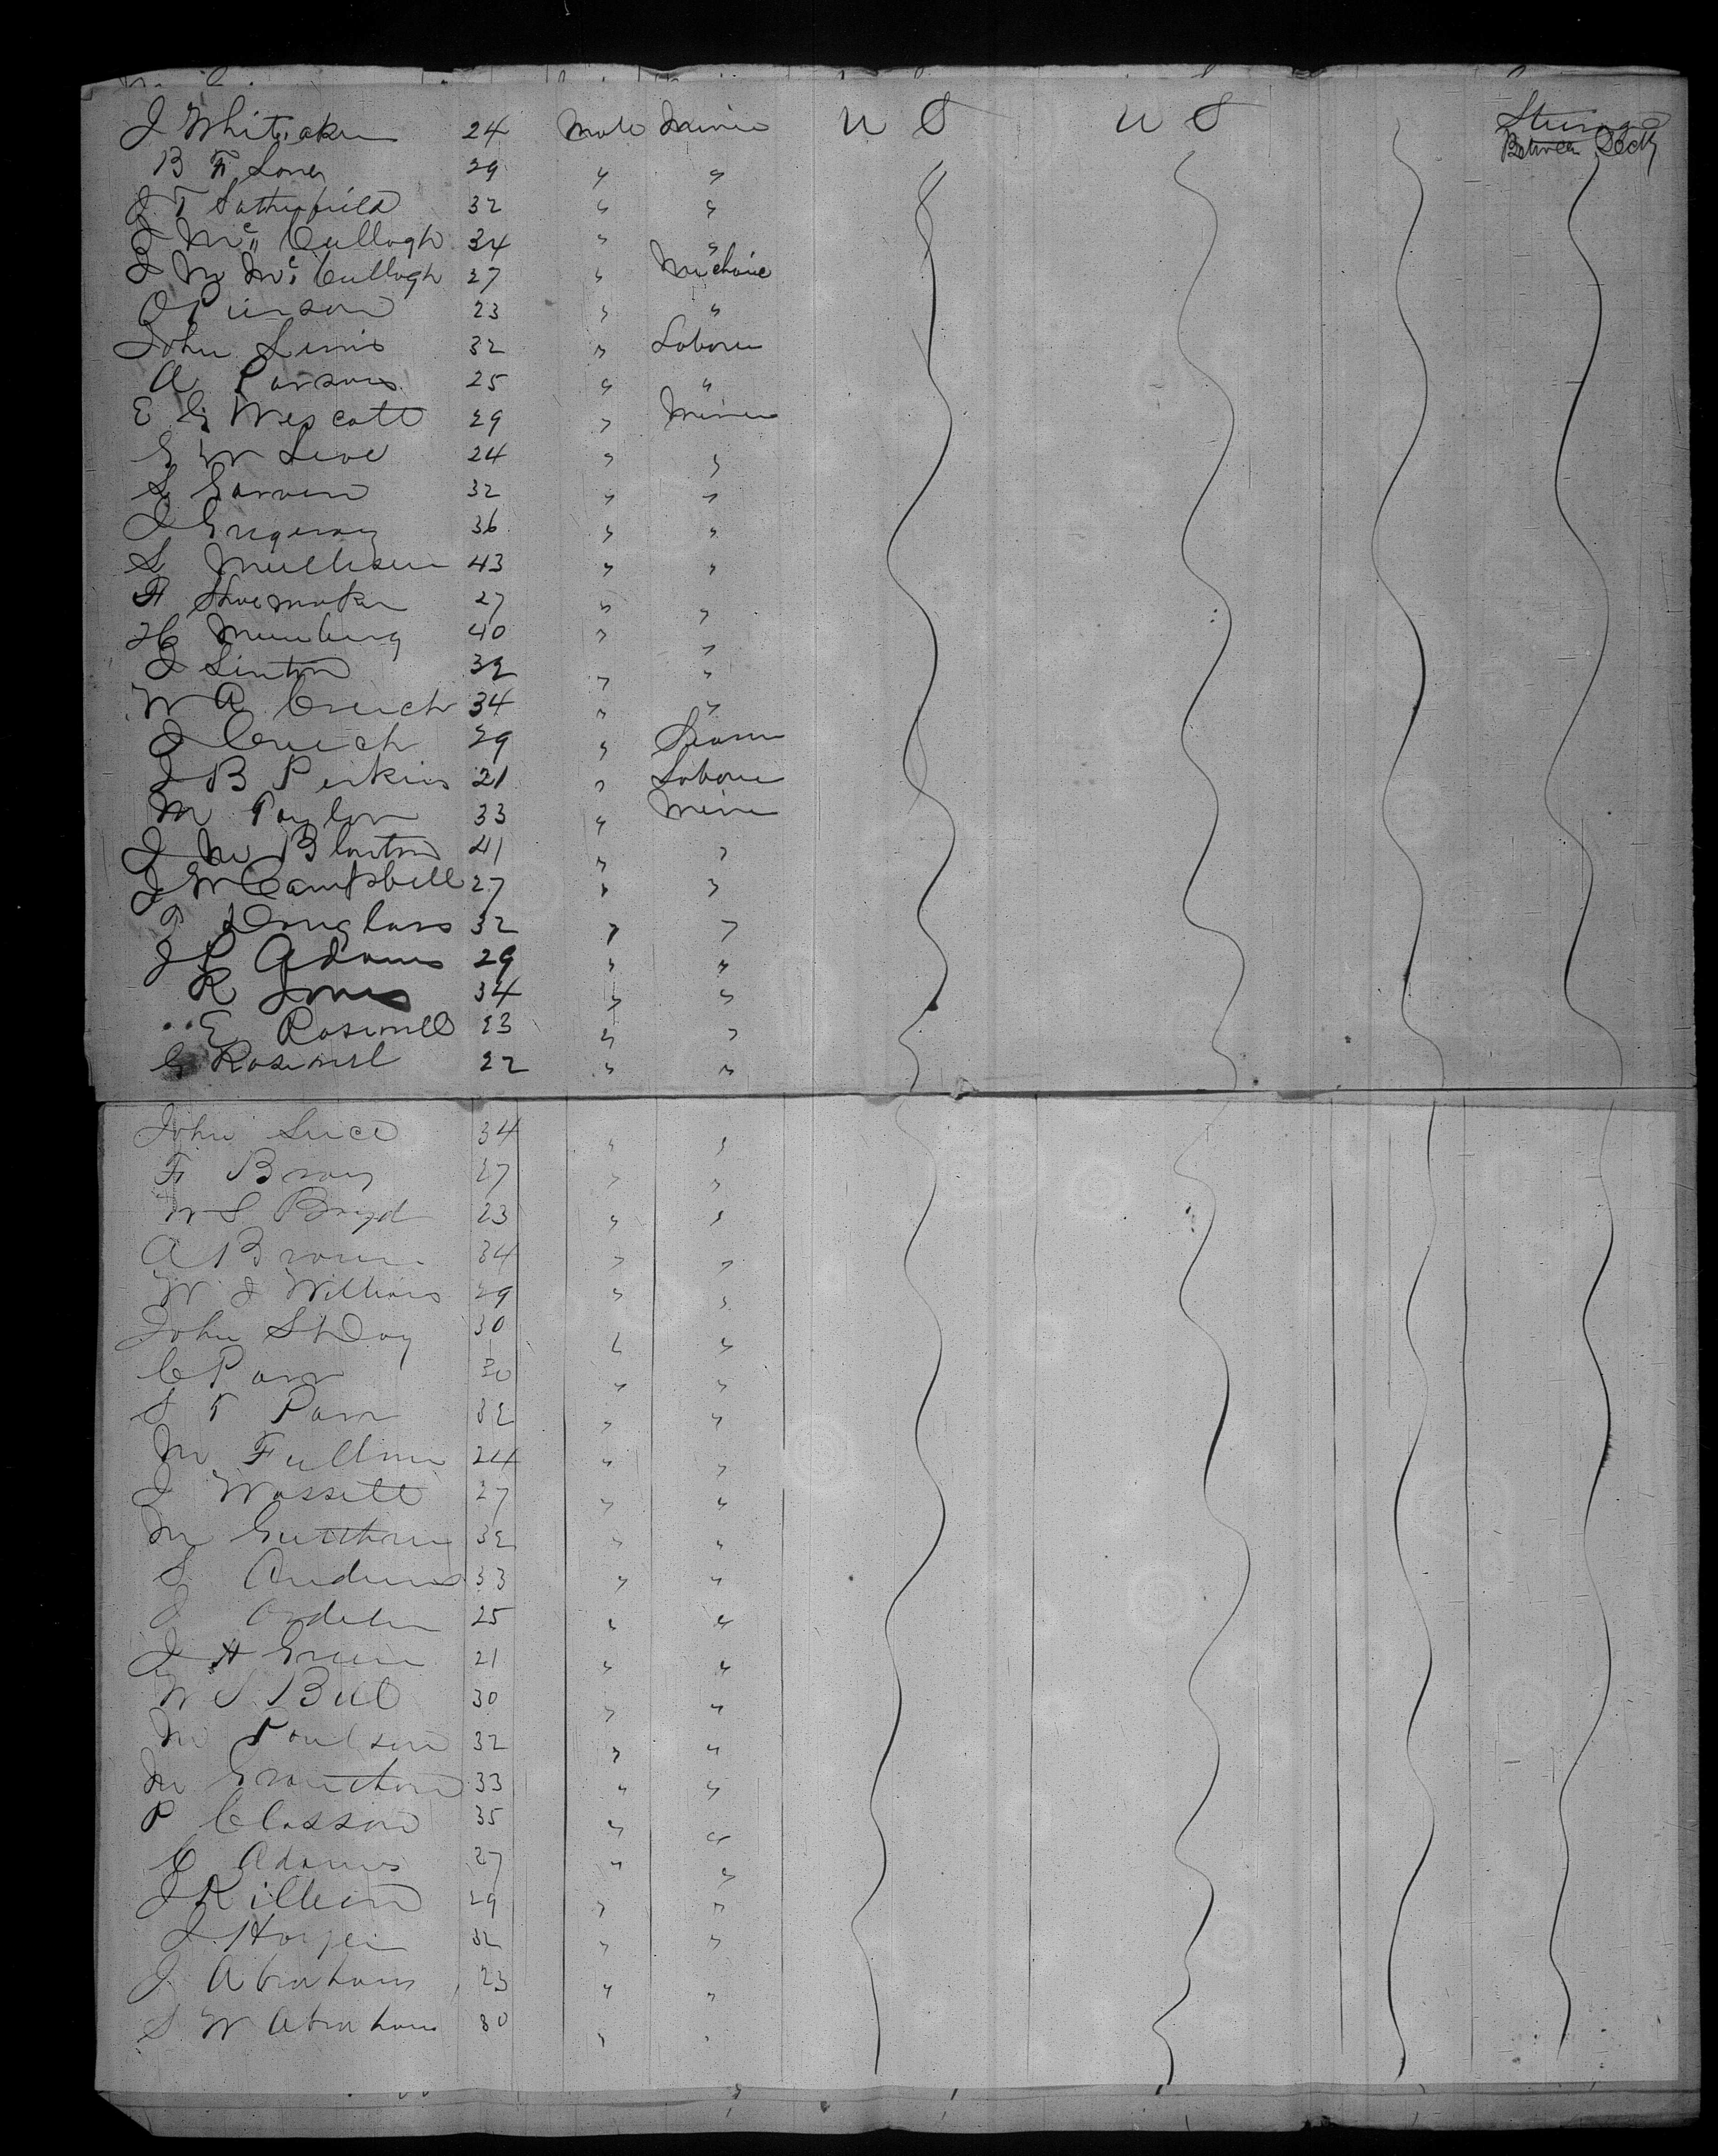 J Whitaker 24 Male Miner U S U S Steerage
B F Lover 29 " " Between Decks
J T Satterfield 32 " "
J Mc Cullogh 34 " "
J M Mc Cullogh 27 " Mechanic
O Pierson 23 " "
John Lewis 32 " Laborer
A Parsons 25 " "
E G Wescott 29 " Miner
G W Love 24 " "
S Garven 32 " "
J Gregway 36 " "
S Mullison 43 " "
F Shoemaker 27 " "
H 40 " "
J Linton 32 " "
W A Creech 34 " "
J Creech 29 "
J B Perkins 21 " Laborer
M Taylor 33 " Miner
J M Blanton 41 " "
J W Campbell 27 " "
T Douglass 32 " "
J P Adams 29 " "
R Jones 34 " "
E Rosewell 23 " "
G Rosewell 22 " "
John Luce 34 " "
F Bray 27 " "
W S Boyd 23 " "
A Brown 34 " "
W J Williams 29 " "
John St Day 30 " "
C Parr 30 " "
S T Parr 32 " "
M Fullmer 24 " "
J Wassell 27 " "
M Gutthrie 32 " "
S Andrews 33 " "
J 25 " "
J H Green 21 " "
W S Bell 30 " "
M Poulson 32 " "
M 33 " "
P Classon 35 " "
C Adams 27 " "
J Killein 29 " "
J Harper 32 " "
J Abrahams 23 " "
S W Abrahams 30 " "